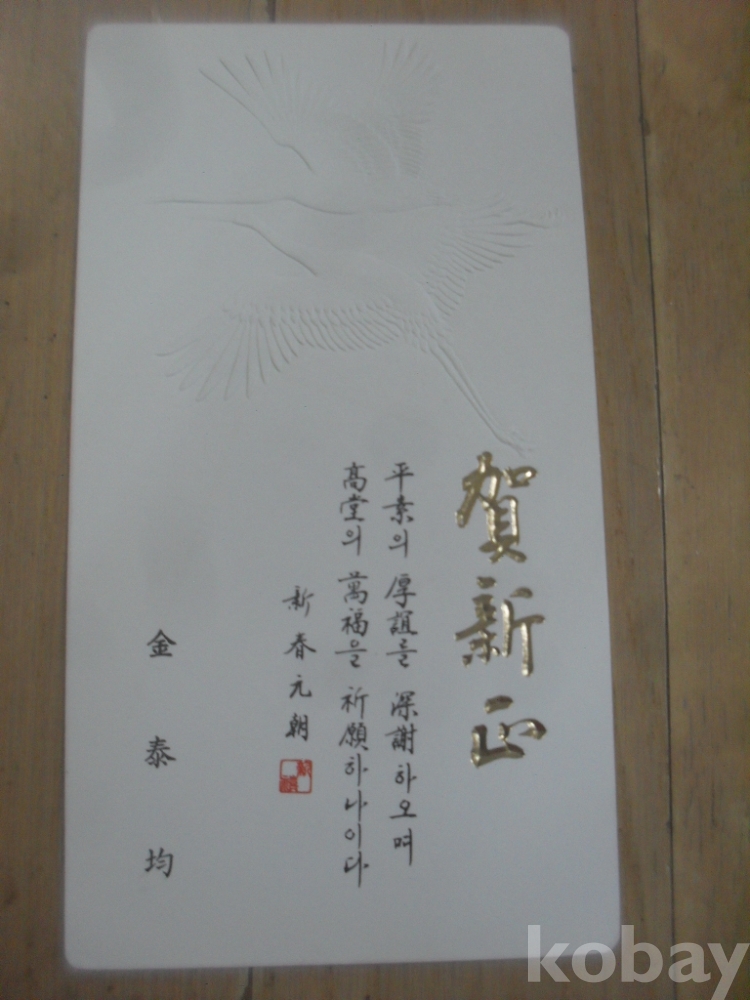 賀新正
平素의 厚誼를 深謝하오며
高堂의 萬福을 祈願하나이다
新春元朝
金泰均
kobay